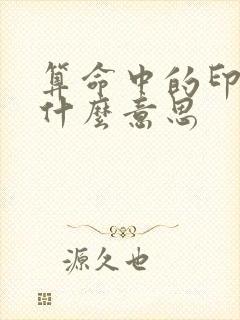 算命中的印
什麼意思
源久也